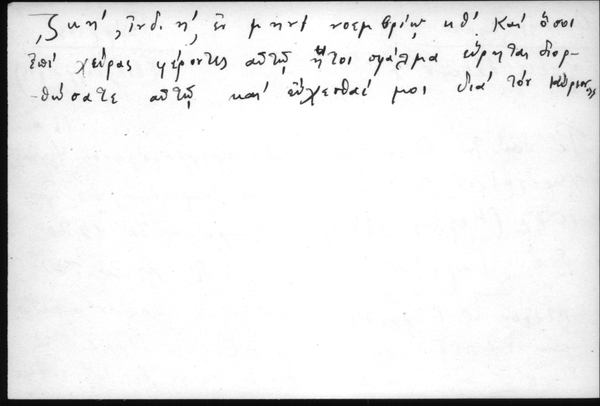 ͵ζκη´, ἰνδ. η´, ἐν μηνὶ νοεμβρίῳ κθ´. Καὶ ὅσοι
ἐπὶ χεῖρας φέροντες αὐτῷ ἤτοι σφάλμα εὕρηται διορ-
-θώσατε αὐτῷ καὶ εὔχεσθαί μοι διὰ τὸν κύριον